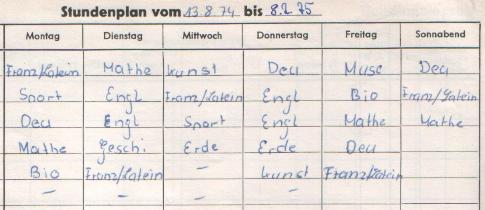 Stundenplan vom 13.8.74 bis 8.2.75
Montag Dienstag Mittwoch Donnerstag Freitag Sonnabend
Franz/Latein Mathe Kunst Deu Musc Deu
Sport Engl Franz/Latein Engl Bio Franz/Latein
Deu Engl Sport Engl Mathe Mathe
Mathe Geschi. Erde Erde Deu
Bio Franz/Latein – Kunst Franz/Latein
– – – –